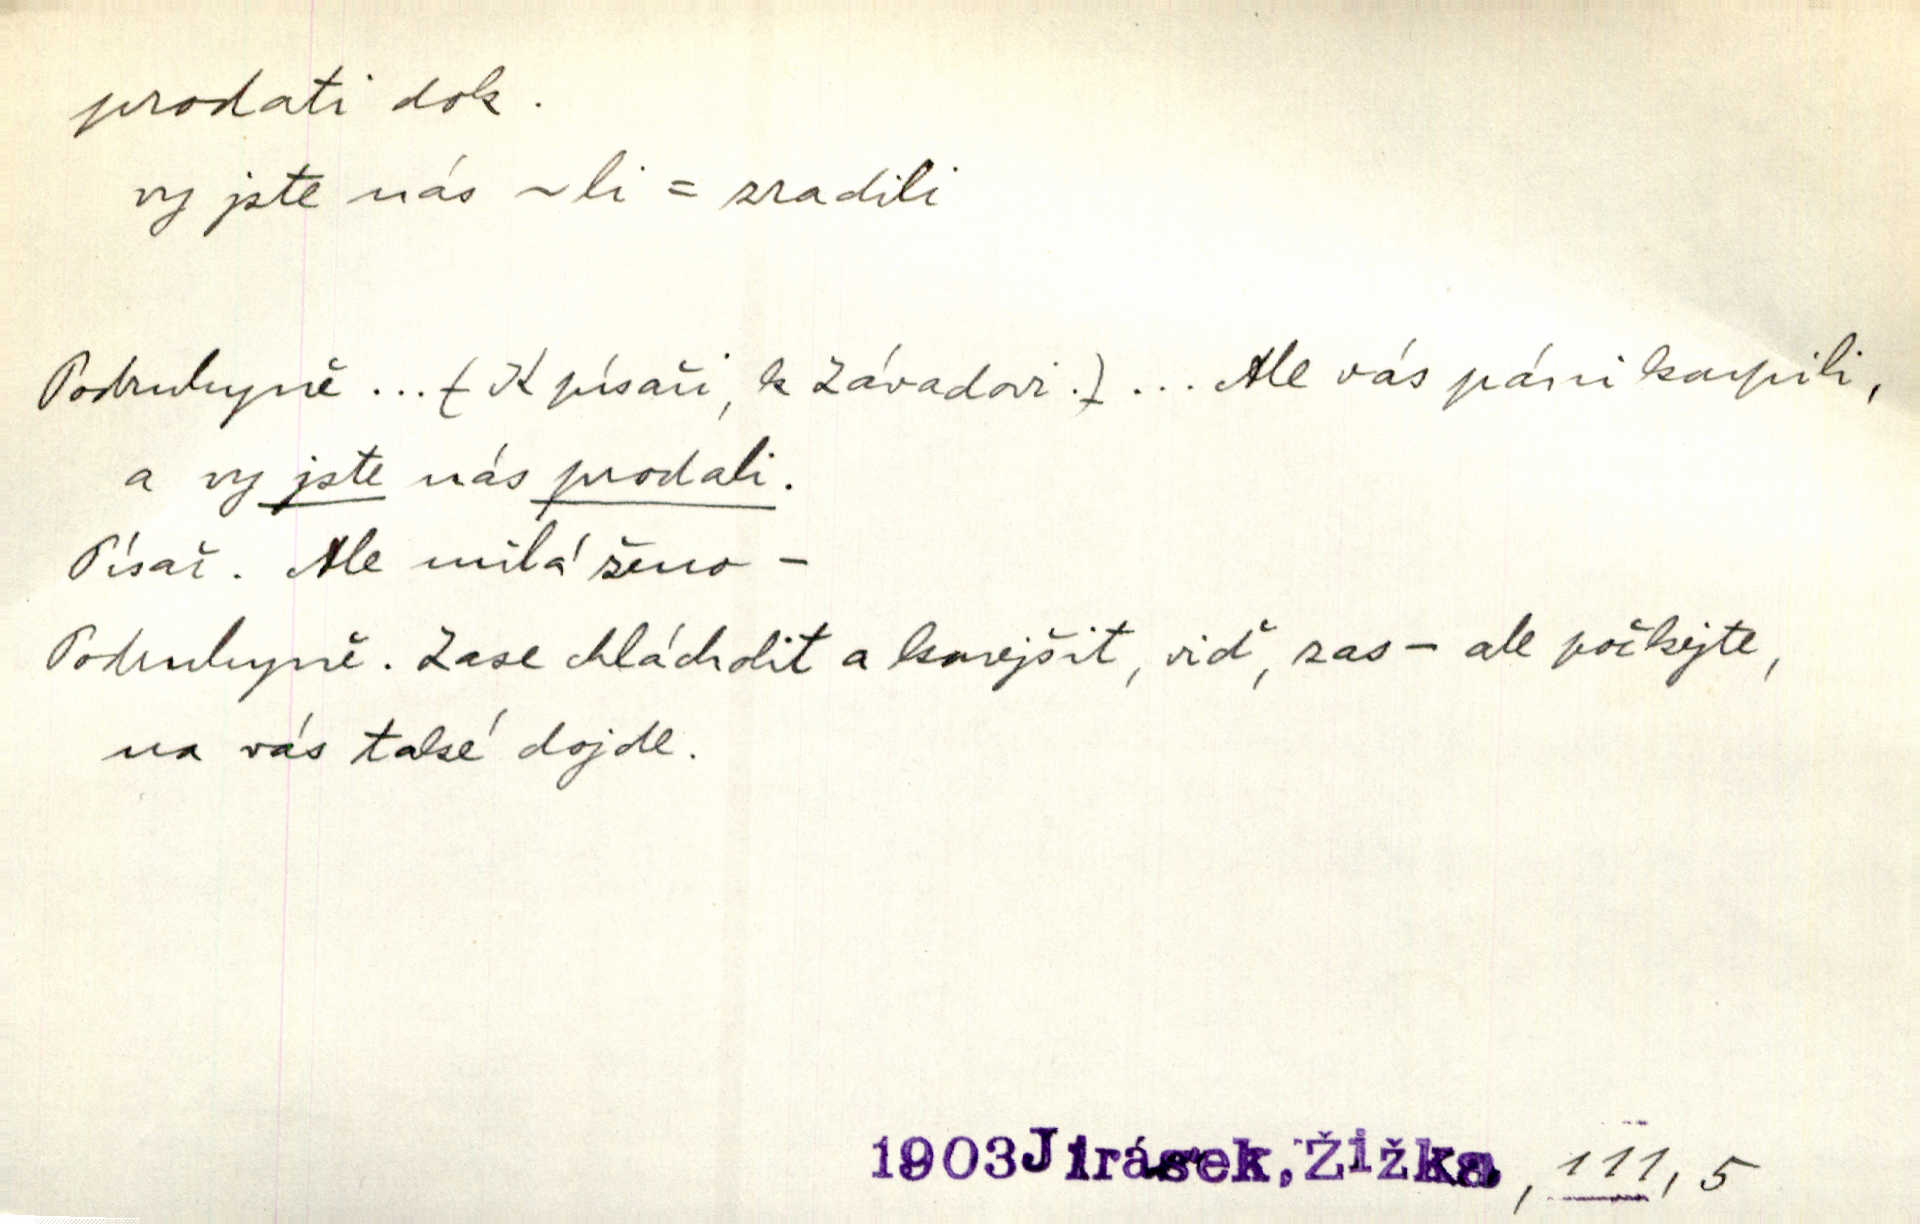 prodati dok.
vy jste nás ~li = zradili
Podruhyně ... (K písaři, k Závadovi.) ... Ale vás páni koupili,
a vy jste nás prodali.
Písař. Ale milá ženo –
Podruhyně. Zase chlácholit a konejšit, viď, zas – ale počkejte,
na vás také dojde.
1903 Jirásek, Žižka, III, 5